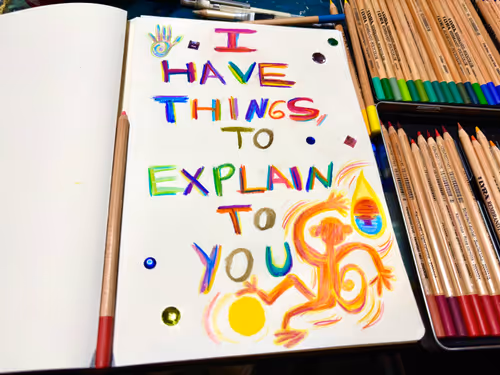 I
HAVE
THINGS,
TO
EXPLAIN
TO
YOU